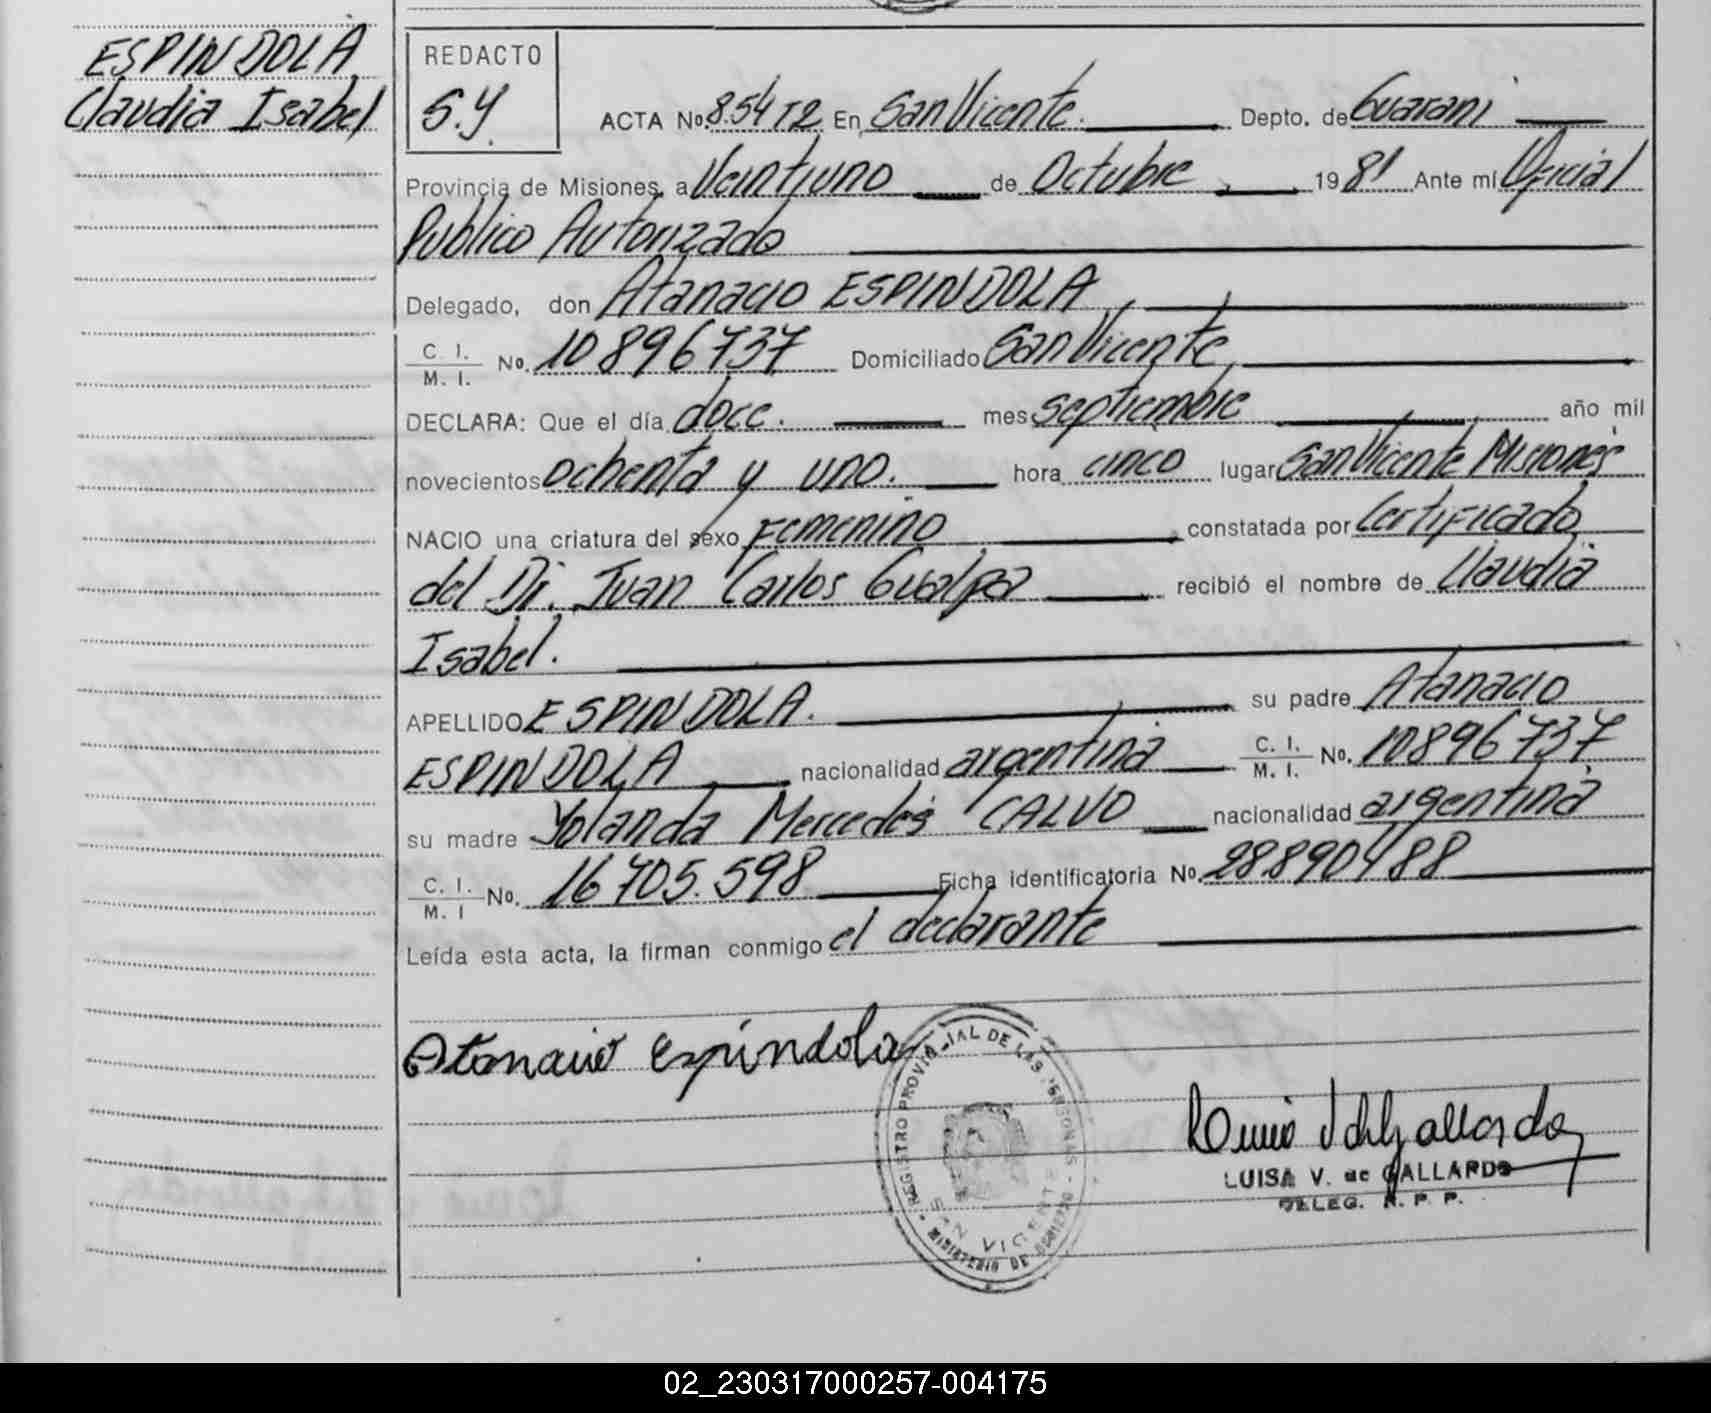 ESPINDOLA
Claudia Isabel
REDACTO
S.Y.
ACTA No. 854 T2 En San Vicente. Depto. de Guarani
Provincia de Misiones, a Veintiuno de Octubre, 1981 Ante mí Oficial
Publico Autorizado
Delegado, don Atanacio ESPINDOLA,
C. I.
M. I. No. 10896737 Domiciliado San Vicente,
DECLARA: Que el día doce. mes septiembre, año mil
novecientos ochenta y uno. hora cinco lugar San Vicente Misiones
NACIO una criatura del sexo Femenino, constatada por Certificado
del Dr. Juan Carlos Gualpa recibió el nombre de Claudia
Isabel.
APELLIDO ESPINDOLA. su padre Atanacio
ESPINDOLA nacionalidad argentina C. I.
M. I. No. 10896737
su madre Yolanda Mercedes CALVO nacionalidad argentina
C. I.
M. I No. 16705.598 Ficha identificatoria No. 28.890488
Leída esta acta, la firman conmigo el declarante
Atanacio Espíndola
REGISTRO PROVINCIAL DE LAS PERSONAS
SAN VICENTE
MINISTERIO DE GOBIERNO
LUISA V. de GALLARDO
DELEG. R. P. P.
02_230317000257-004175